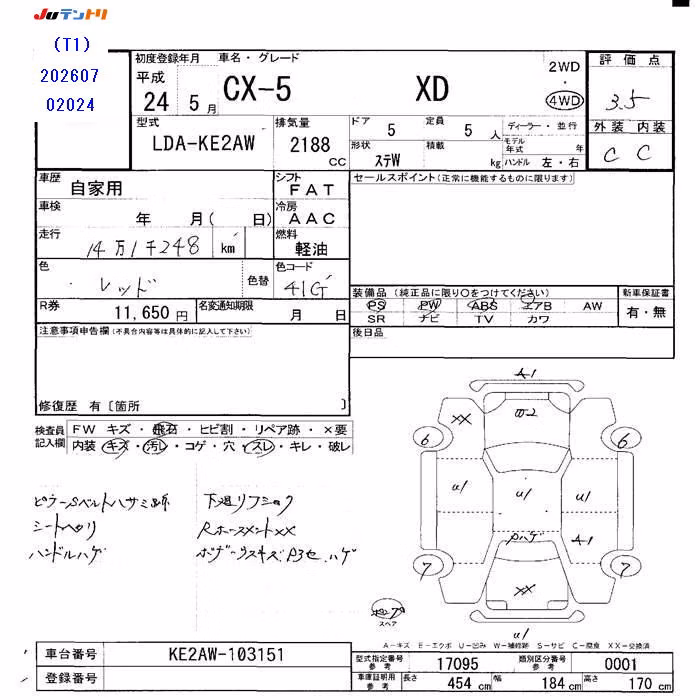 JUテントリ
(T1)
202607
02024
初度登録年月
車名・グレード
平成
24 5月
CX-5 XD
2WD
・
4WD
評価点
3.5
外装 内装
C C
型式
LDA-KE2AW
排気量
2188 CC
ドア 5
定員 5人
ディーラー・並行
形状 ステW
積載 kg
モデル年式 年
ハンドル 左・右
車歴
自家用
シフト
FAT
セールスポイント(正常に機能するものに限ります)
車検
年 月( 日)
冷房
AAC
走行
14万1千248 km
燃料
軽油
色
レッド
色替
色コード
41G
R券
11,650 円
名変通知期限
月 日
装備品(純正品に限り○をつけてください)
PS PW ABS エアB AW
SR ナビ TV カワ
新車保証書
有・無
後日品
注意事項申告欄(不具合内容等は具体的に記入して下さい)
修復歴 有〔箇所 〕
検査員
記入欄
FW キズ・飛石・ヒビ割・リペア跡・×要
内装・キズ・汚レ・コゲ・穴・スレ・キレ・破レ
シートヘタリ
ハンドルハゲ
A1
XX
U2
6 6
U1 U1 U1
Pハゲ
A1
7 7
XX
U1
スペア
A-キズ E-エクボ U-凹み W-補修跡 S-サビ C-腐食 XX-交換済
車台番号
KE2AW-103151
登録番号
型式指定番号
参考
17095
類別区分番号
参考
0001
車庫証明用
参考
長さ 454 cm
幅 184 cm
高さ 170 cm